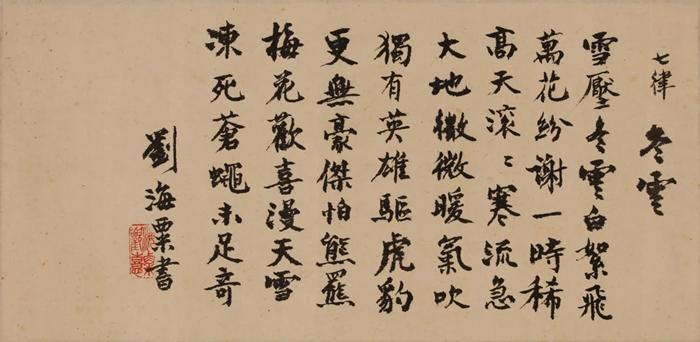 七律 冬雲
雪壓冬雲白絮飛
萬花紛謝一時稀
高天滾〻寒流急
大地微微暖氣吹
獨有英雄驅虎豹
更無豪傑怕熊羆
梅花歡喜漫天雪
凍死蒼蠅未足奇
劉海粟書